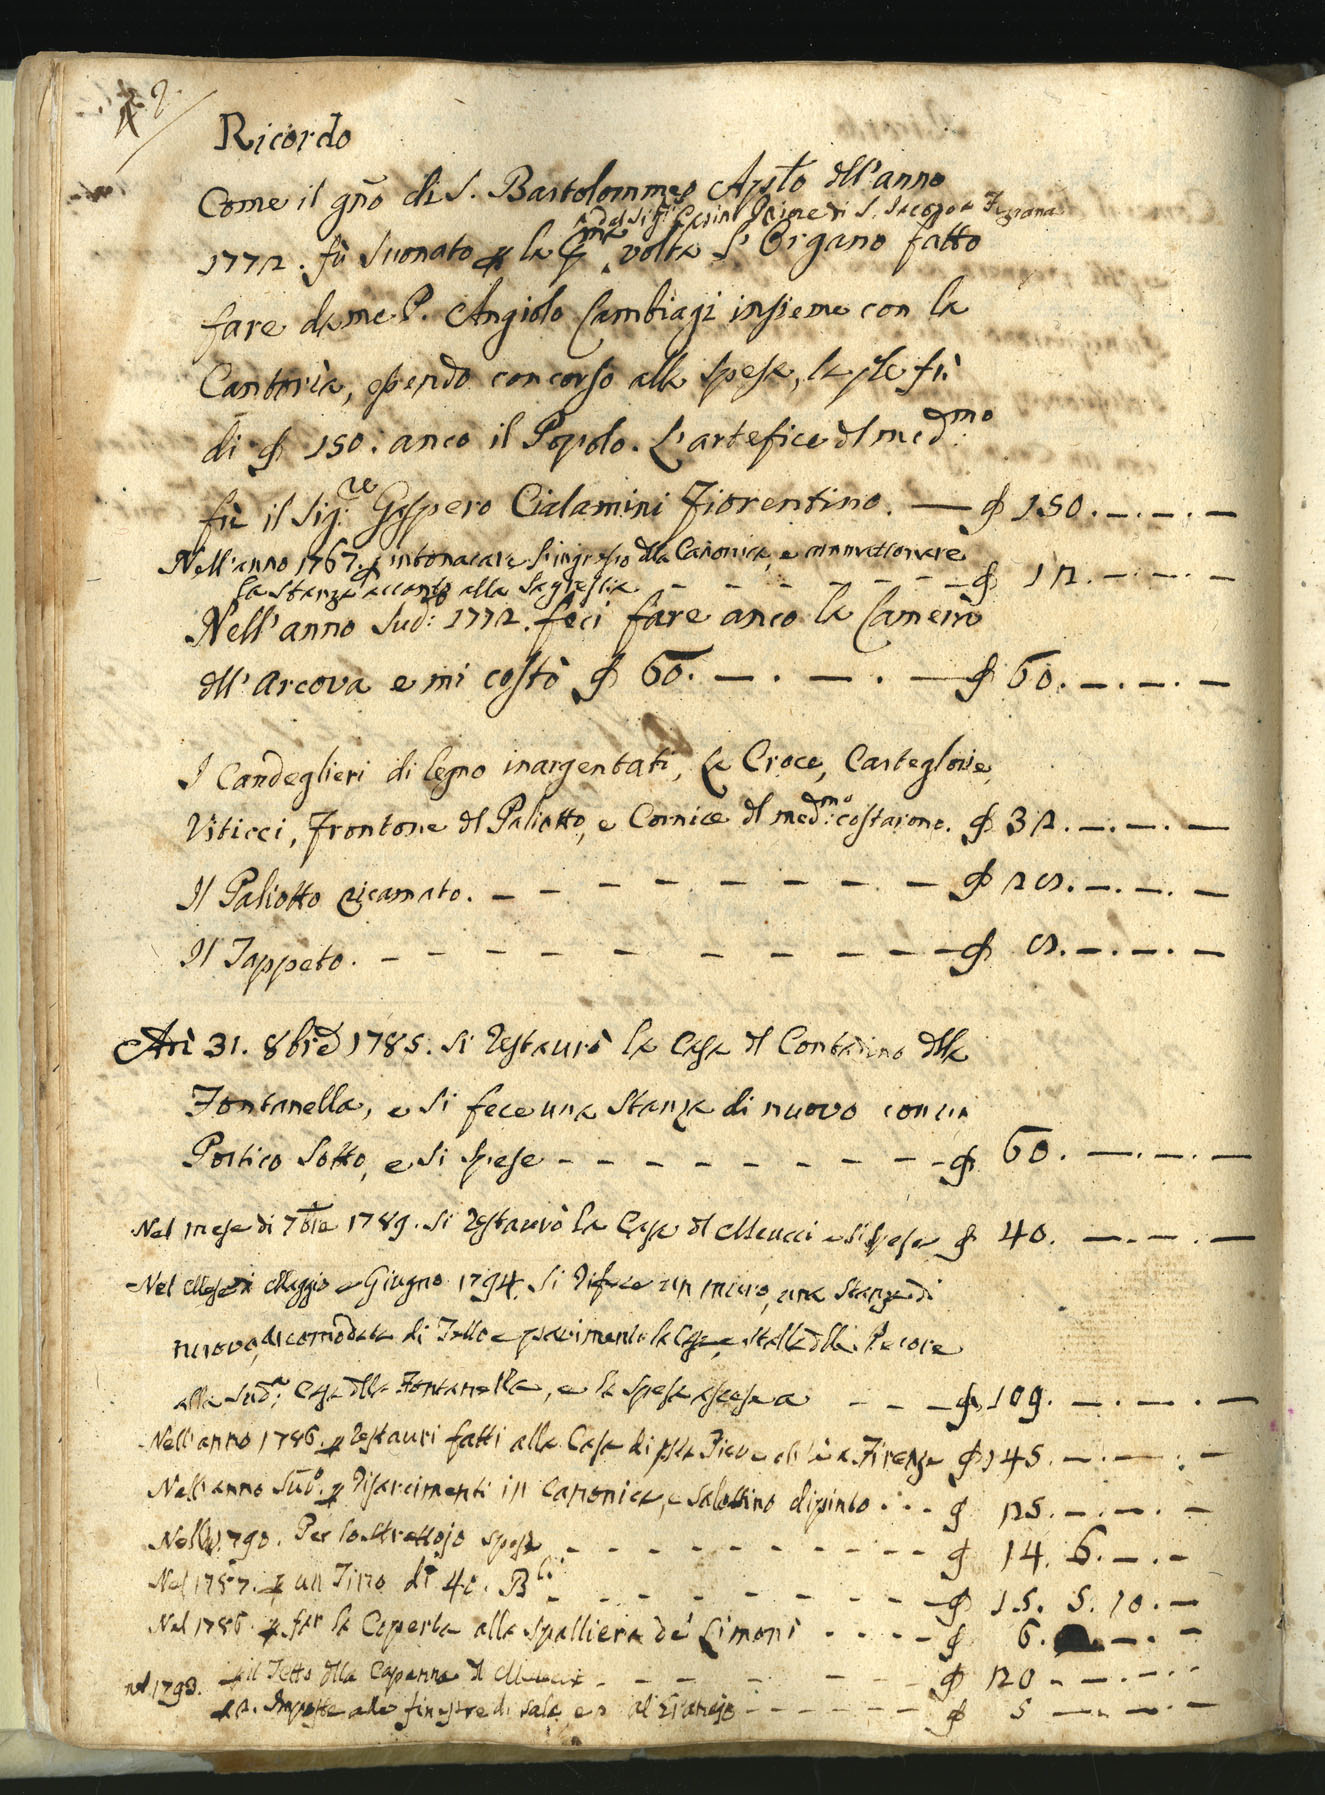 Ricordo
Come il gño di S. Bartolommeo Apsto dll'anno
a dal Sig: Casini Priore di S. Jacopo a
1772. fù Suonato p la pma volta l'Organo fatto
fare da me P. Angiolo Cambiagi insieme con la
Cantoria, essendo concorso alla spesa, la qle fù
di ₰ 150: anco il Popolo. L'artefice dl medmo:
fù il Sig:re Gaspero Cialamini Fiorentino. — ₰ 150. — . — . —
Nell'anno 1767. p intonacare l'ingresso dlla Canonica, e ammattonare
la Stanza accanto alla Sagrestia - - - - - - - ₰ 12. — . — . —
Nell'anno Sud: 1772. feci fare anco la Camera
dll'Arcova e mi costò ₰ 60. — . — . — ₰ 60. — . — . —
I Candeglieri di legno inargentati, la Croce, Carteglorie,
Viticci, Frontone dl Paliotto, e Cornice dl medmo: costarono. ₰ 32. — . — . —
Il Paliotto ricamato. - - - - - - - - ₰ 25. — . — . —
Il Tappeto. - - - - - - - - - - ₰ 5. — . — . —
Adì 31. 8bre 1785. Si restaurò la Casa dl Contadino dlla
Fontanella, e Si fece una Stanza di nuovo con un
Portico Sotto, e Si Spese - - - - - - - - - ₰ 60. — . — . —
Nel mese di 7bre 1789. Si restaurò la Casa dl Meucci e Si Spese ₰ 40. — . — . —
Nel Mese di Maggio e Giugno 1794. Si rifece un muro, una Stanza di
nuovo, accomodata di Tetto e pavimento la Casa, e Stalla dlle Pecore
alla Suda: Casa dlla Fontanella, e la Spesa ascese a - - - ₰ 109. — . — . —
Nell'anno 1786. p restauri fatti alla Casa di Firenze ₰ 145. — . — . —
Nell'anno Sudo. p risarcimenti in Canonica, e Salottino dipinto . . - ₰ 125. — . — . —
Nell 1790. Per lo Strettojo spesi - - - - - - - - - - ₰ 14. 6. — . —
Nel 1787. p un Tino di 40. Bli: - - - - - - - - ₰ 15. 5. 10. —
Nel 1786. p far la Coperta alla Spalliera de' Limoni - - - - ₰ 6. — . —
nel 1793. p il Tetto dlla Capanna dl Meucci - - - - - - ₰ 120 - — . — . —
p 2. Imposte alle finestre di Sala, e al - - - - - - ₰ 5 — . — . —